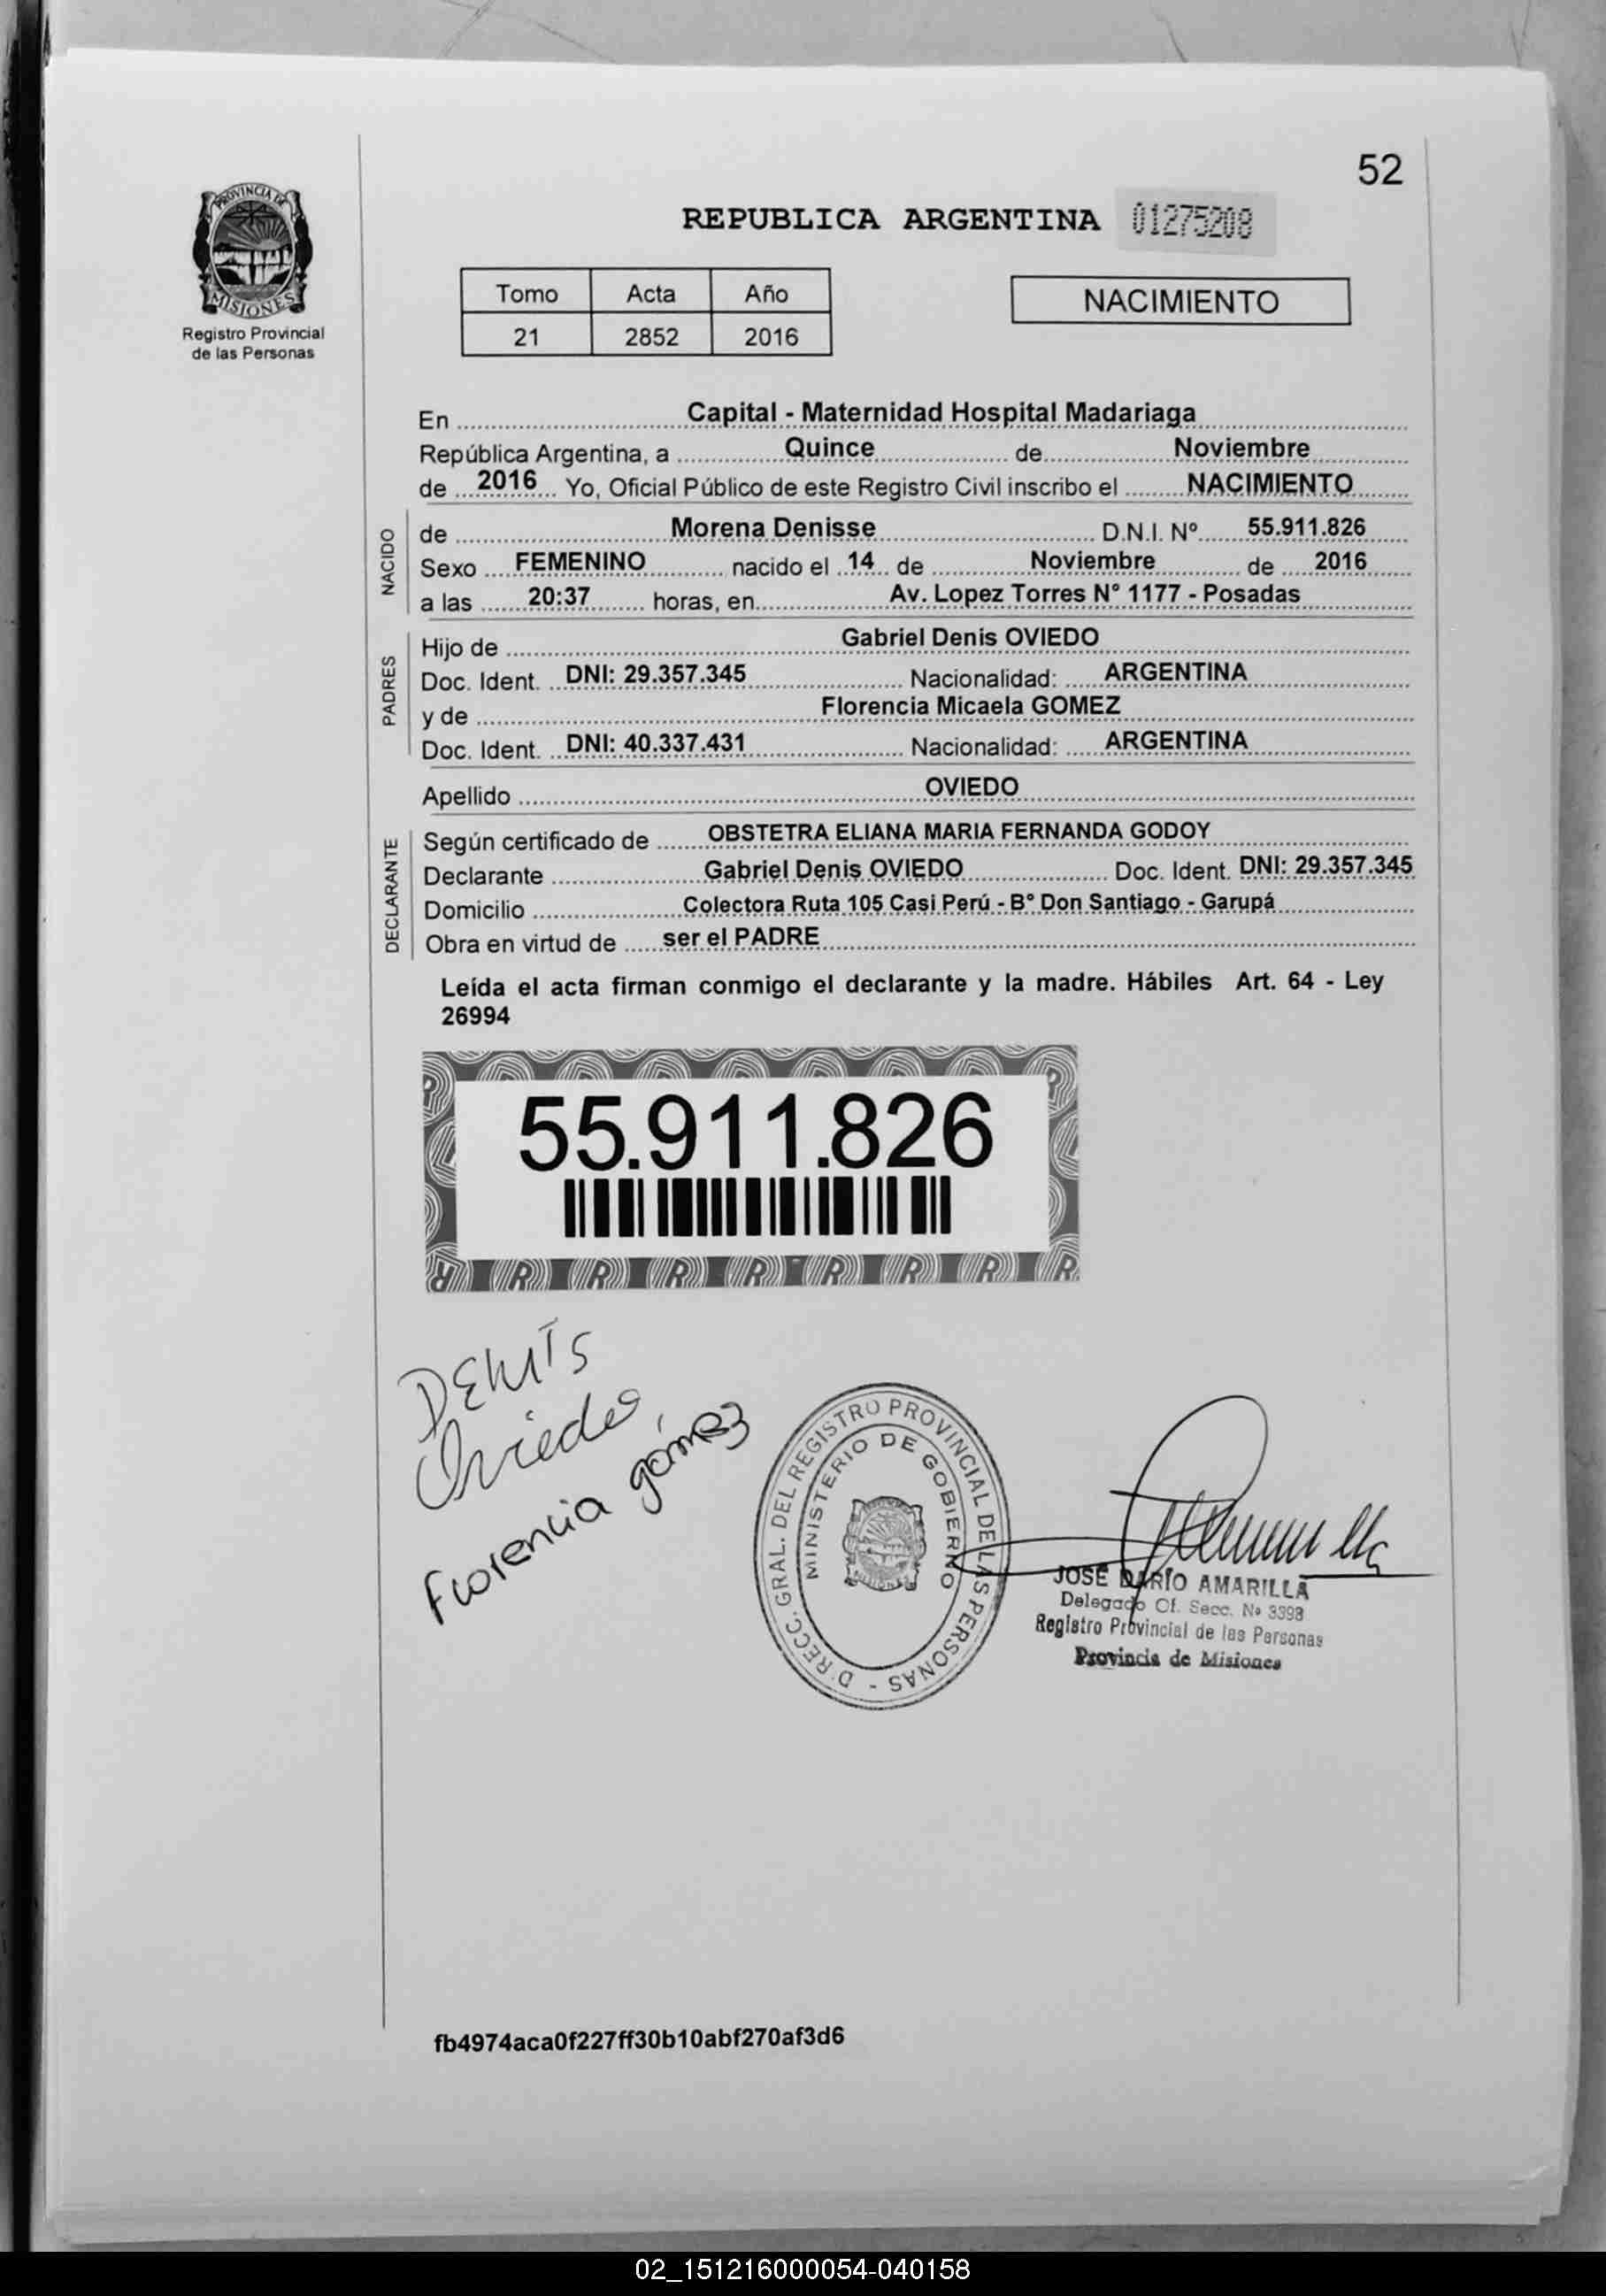 52
PROVINCIA DE
MISIONES
Registro Provincial
de las Personas
REPUBLICA ARGENTINA 01275208
Tomo Acta Año
21 2852 2016
NACIMIENTO
En Capital - Maternidad Hospital Madariaga
República Argentina, a Quince de Noviembre
de 2016 Yo, Oficial Público de este Registro Civil inscribo el NACIMIENTO
NACIDO
de Morena Denisse D.N.I. Nº 55.911.826
Sexo FEMENINO nacido el 14 de Noviembre de 2016
a las 20:37 horas, en Av. Lopez Torres N° 1177 - Posadas
PADRES
Hijo de Gabriel Denis OVIEDO
Doc. Ident. DNI: 29.357.345 Nacionalidad: ARGENTINA
y de Florencia Micaela GOMEZ
Doc. Ident. DNI: 40.337.431 Nacionalidad: ARGENTINA
Apellido OVIEDO
DECLARANTE
Según certificado de OBSTETRA ELIANA MARIA FERNANDA GODOY
Declarante Gabriel Denis OVIEDO Doc. Ident. DNI: 29.357.345
Domicilio Colectora Ruta 105 Casi Perú - B° Don Santiago - Garupá
Obra en virtud de ser el PADRE
Leída el acta firman conmigo el declarante y la madre. Hábiles Art. 64 - Ley
26994
55.911.826
DENIS
Oviedo
Florencia gómez
D RECC. GRAL. DEL REGISTRO PROVINCIAL DE LAS PERSONAS -
MINISTERIO DE GOBIERNO
MISIONES
JOSÉ DARÍO AMARILLA
Delegado Cf. Secc. Nº 3393
Registro Provincial de las Personas
Provincia de Misiones
fb4974aca0f227ff30b10abf270af3d6
02_151216000054-040158